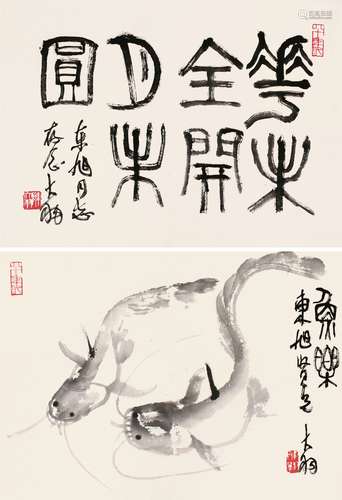 華未
全開
月未
圓
東旭同志
存念 大翔
魚樂
東旭賢兄
大翔